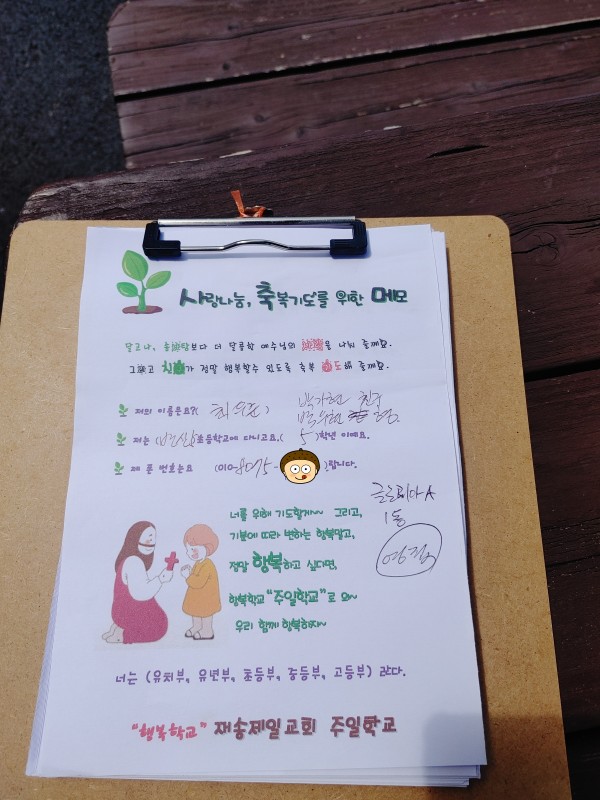 사랑나눔, 축복기도를 위한 메모
달고나, 솜사탕보다 더 달콤한 예수님의 사랑을 나눠 줄께요.
그리고 친구가 정말 행복할수 있도록 축복 기도해 줄께요.
저의 이름은요?( 최 )
박가현 친구
박우현
저는 ( )초등학교에 다니고요.( 5 )학년 이예요.
제 폰 번호는요 ( )입니다.
글로리아 A
1동
영접
너를 위해 기도할게~ 그리고,
기분에 따라 변하는 행복말고,
정말 행복하고 싶다면,
행복학교 "주일학교"로 와~
우리 함께 행복하자~
너는 (유치부, 유년부, 초등부, 중등부, 고등부) 란다.
"행복학교" 재송제일교회 주일학교